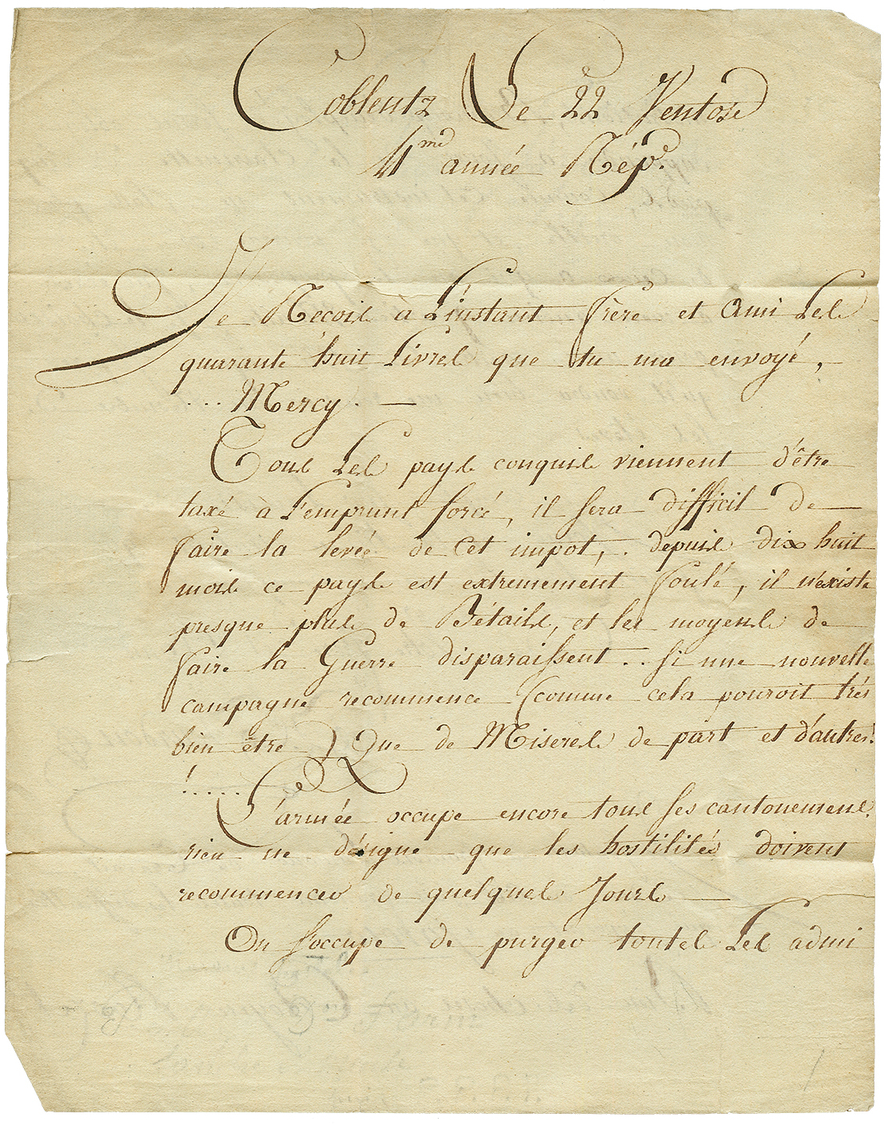 Coblentz Le 22 Ventose
4me année Rép.e
Je Recois à L'instant frère et Ami Les
quarante huit Livres que tu ma envoyé,
... Mercy. —
Tous Les pays conquis viennent d'être
taxé à L'emprunt forcé, il sera difficil de
faire la levée de cet impot,. depuis dix huit
mois ce pays est extremement foulé, il n'existe
presque plus de Bétails, et les moyens de
faire la Guerre disparaissent.. si une nouvelle
campagne recommence (comme cela pouroit très
bien etre) Que de Miseres de part et d'autres!
!.....
L'armée occupe encore tous ses cantonements.
rien ne désigne que les hostilités doivent
recommencer de quelques Jours —
On s'occupe de purger toutes Les admi